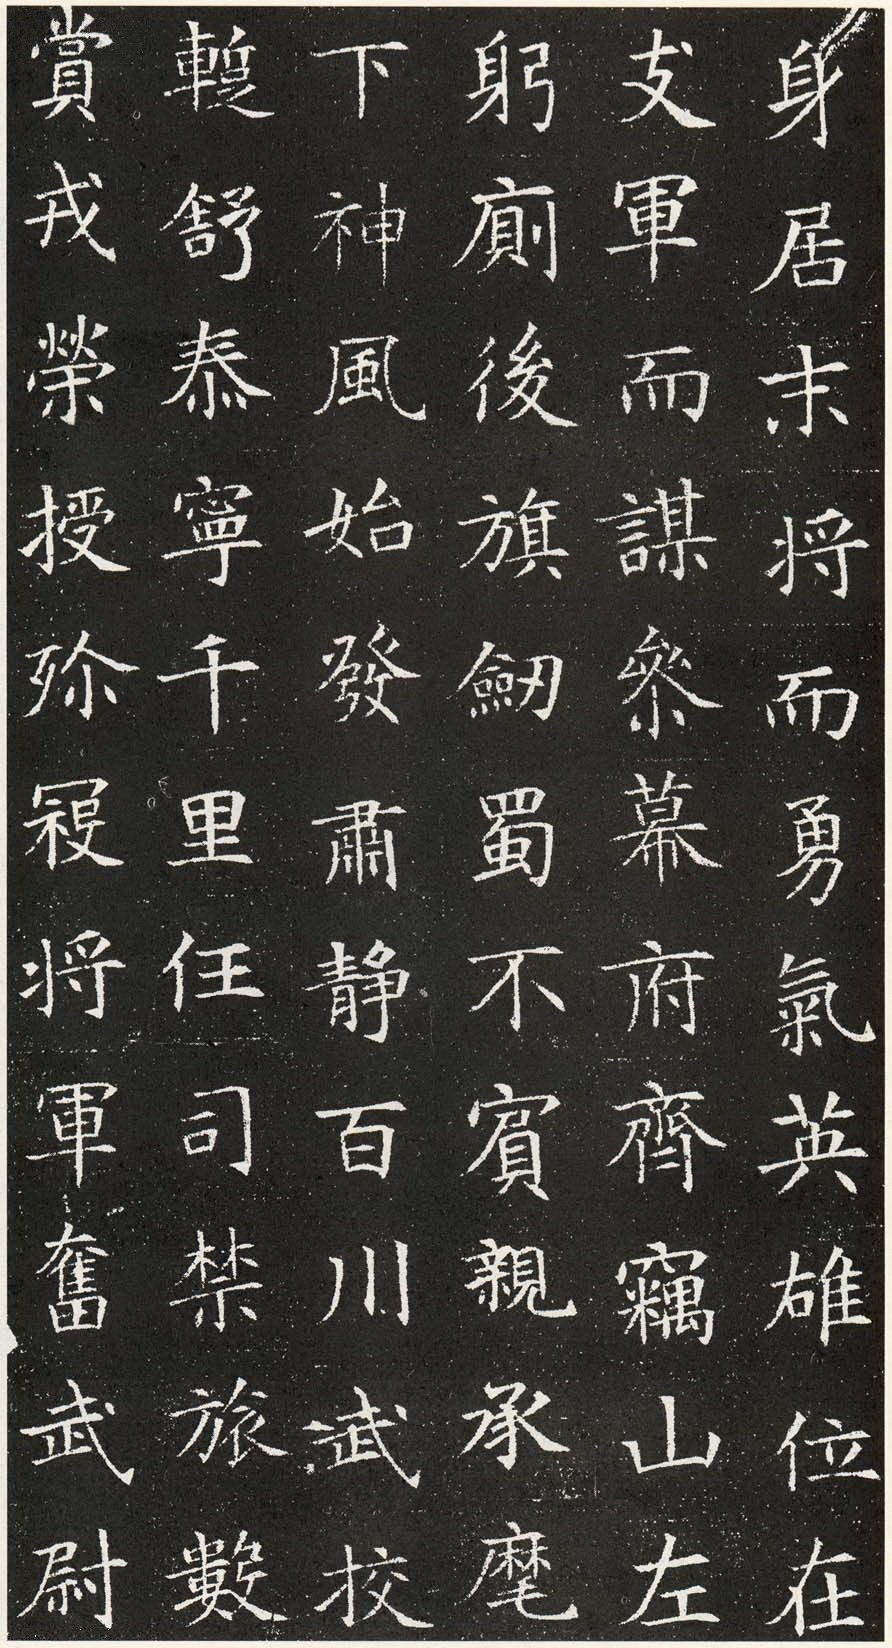 身居末将而勇氣英雄位在
支軍而謀叅幕府齊竊山左
躬廁後旗劔蜀不賓親承麾
下神風始發肅静百川武挍
暫舒泰寧千里任司禁旅數
賞戎榮授殄寇将軍奮武尉